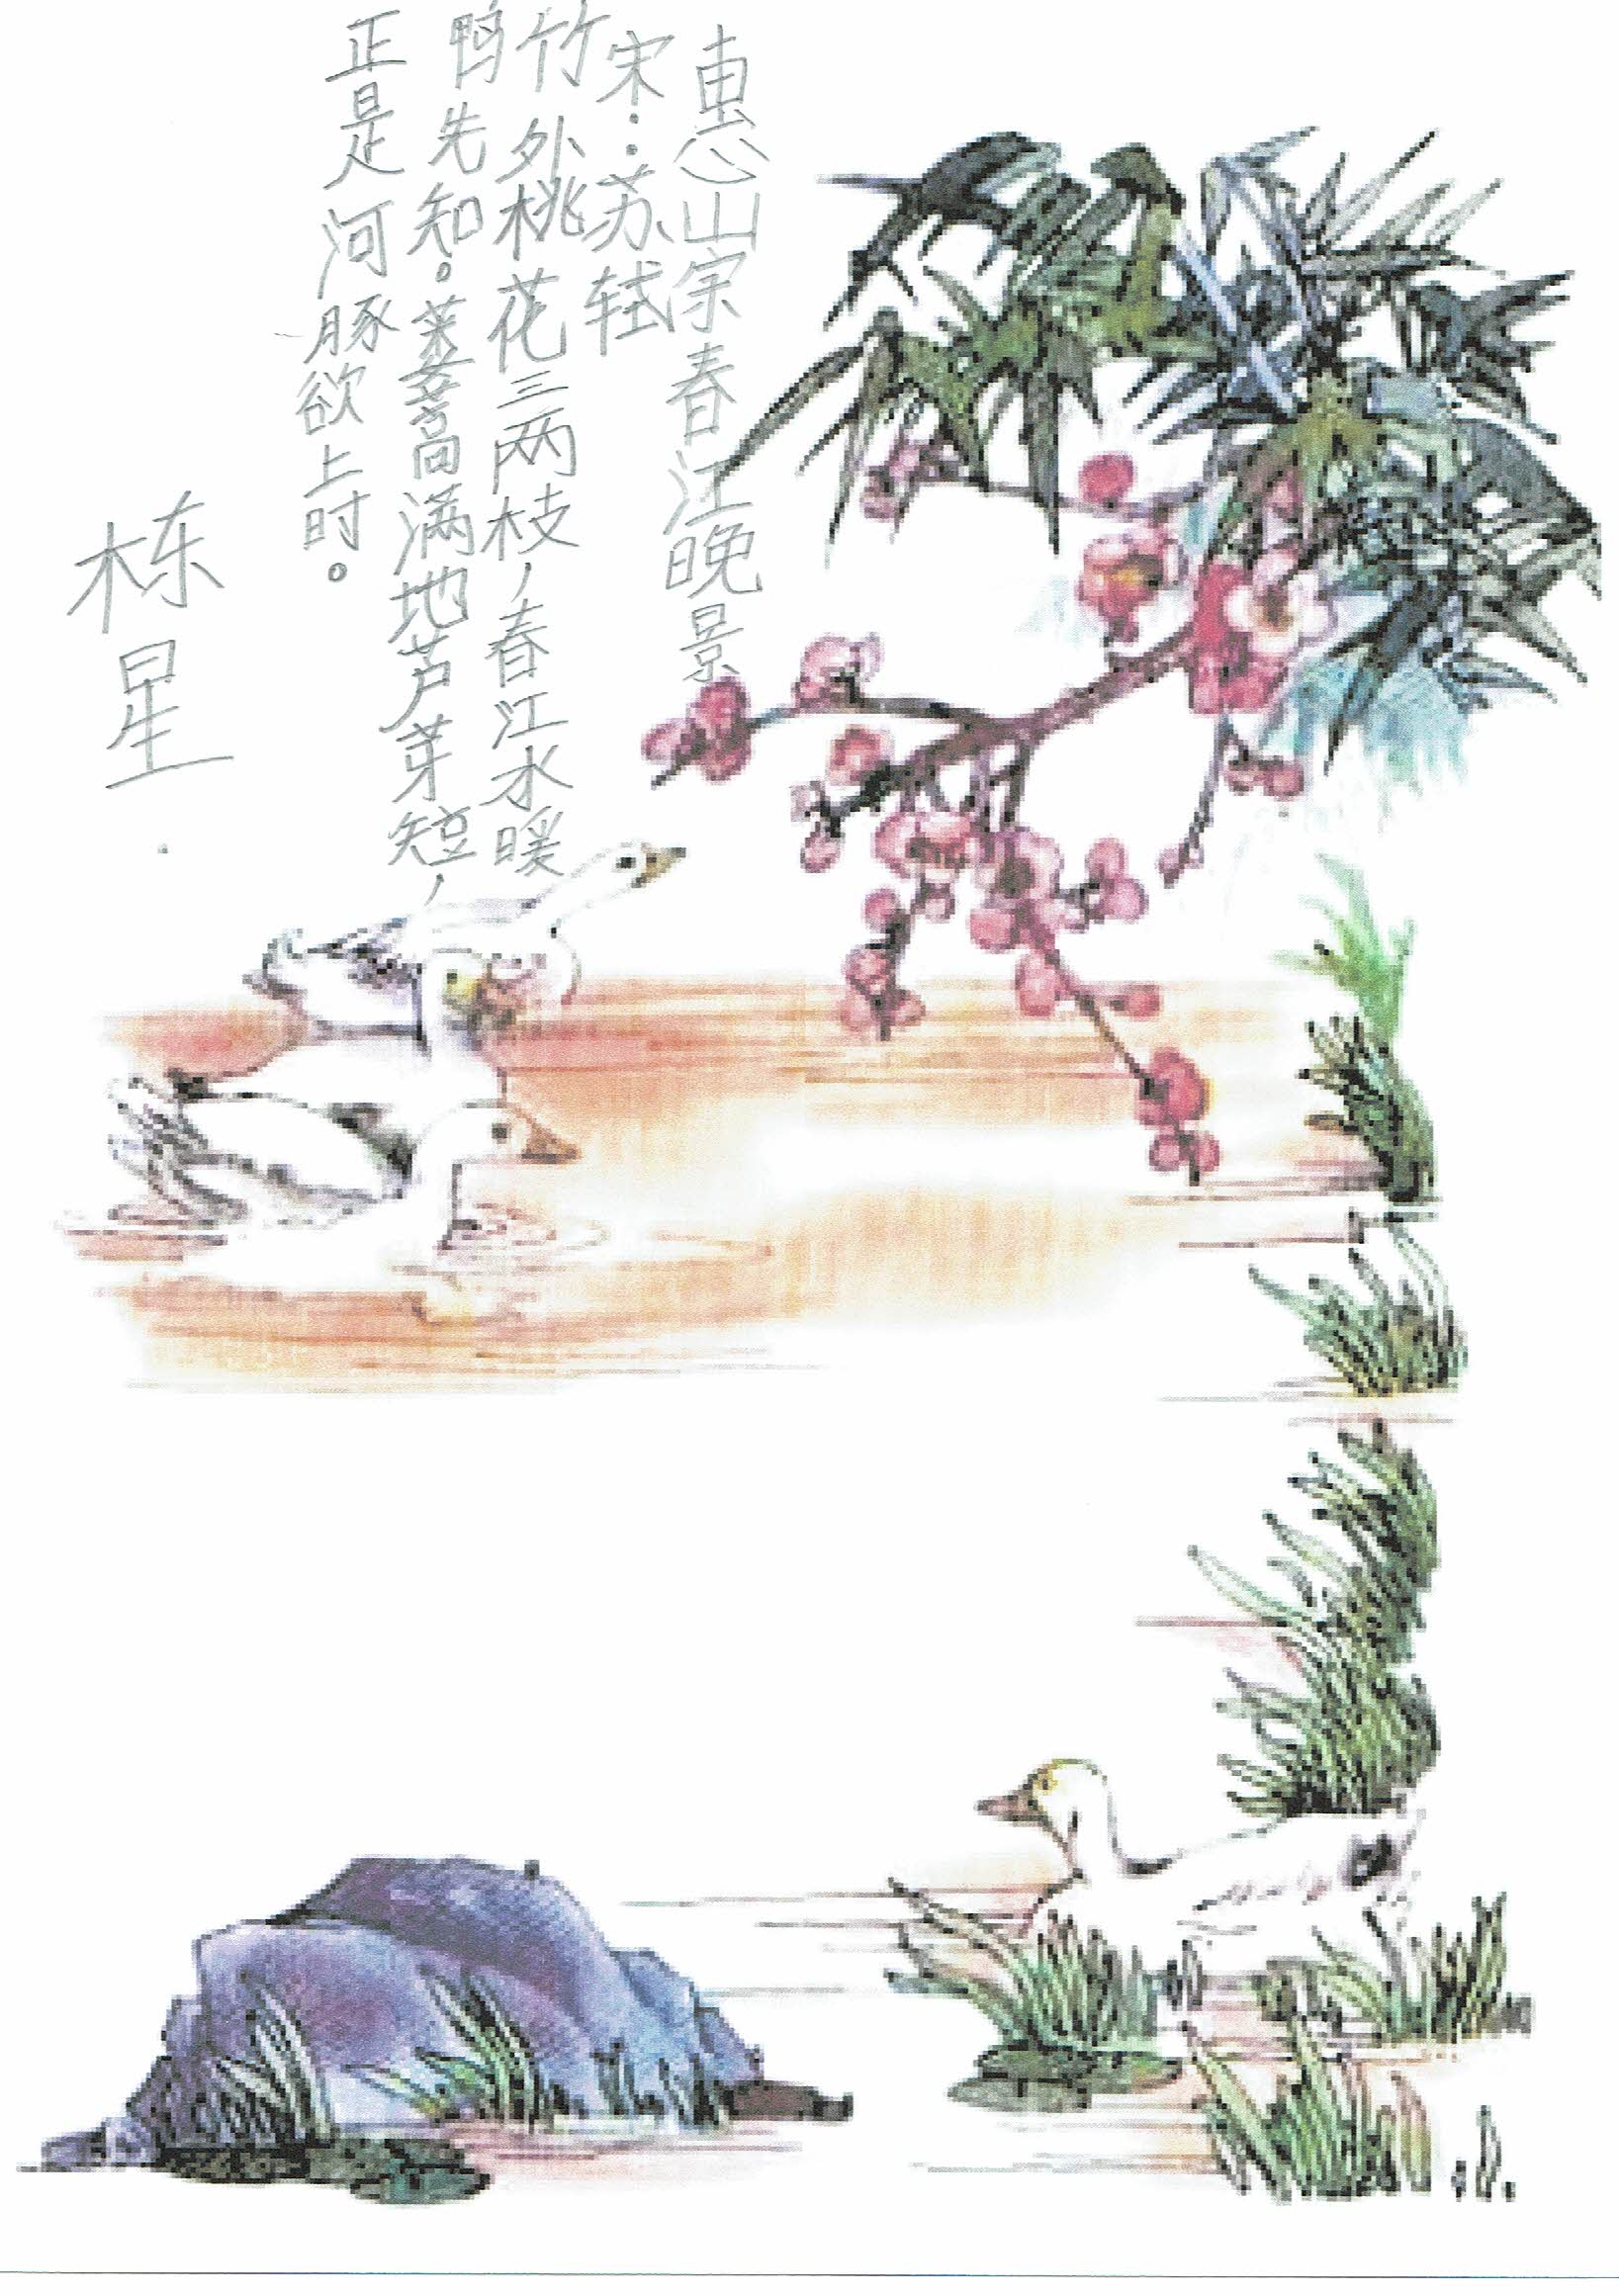 惠崇春江晚景
宋：苏轼
竹外桃花三两枝，春江水暖
鸭先知。蒌蒿满地芦芽短，
正是河豚欲上时。
栋星